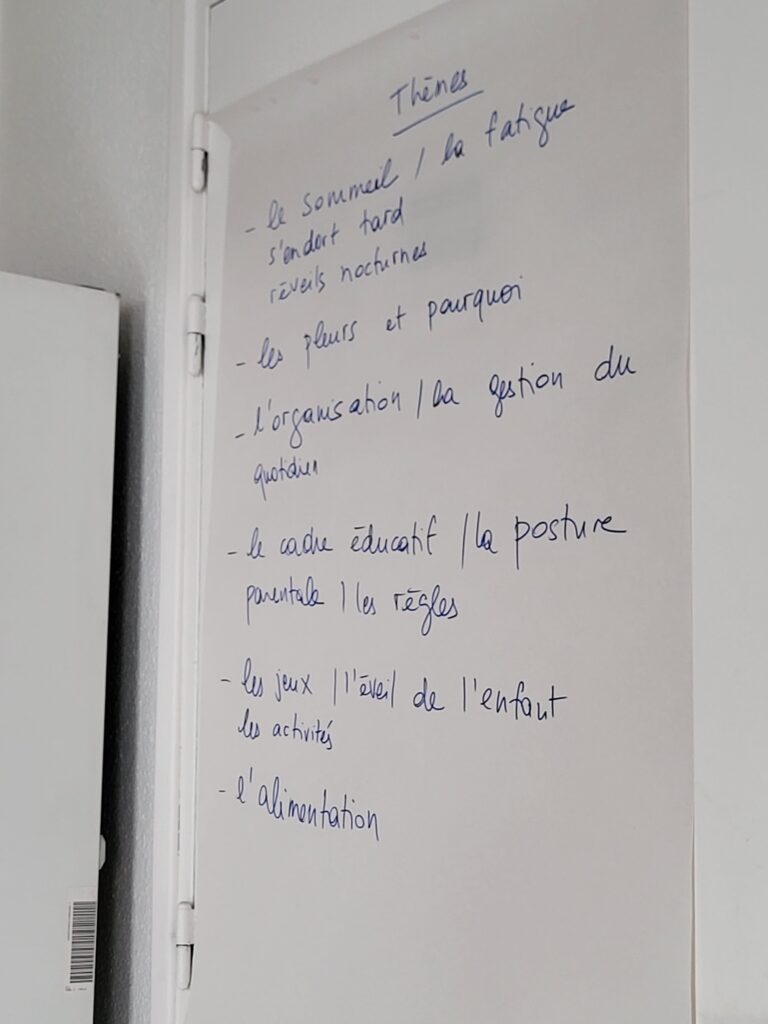 Thèmes
- le sommeil / la fatigue
s'endort tard
réveils nocturnes
- les pleurs et pourquoi
- l'organisation / la gestion du
quotidien
- le cadre éducatif / la posture
parentale / les règles
- les jeux / l'éveil de l'enfant
les activités
- l'alimentation